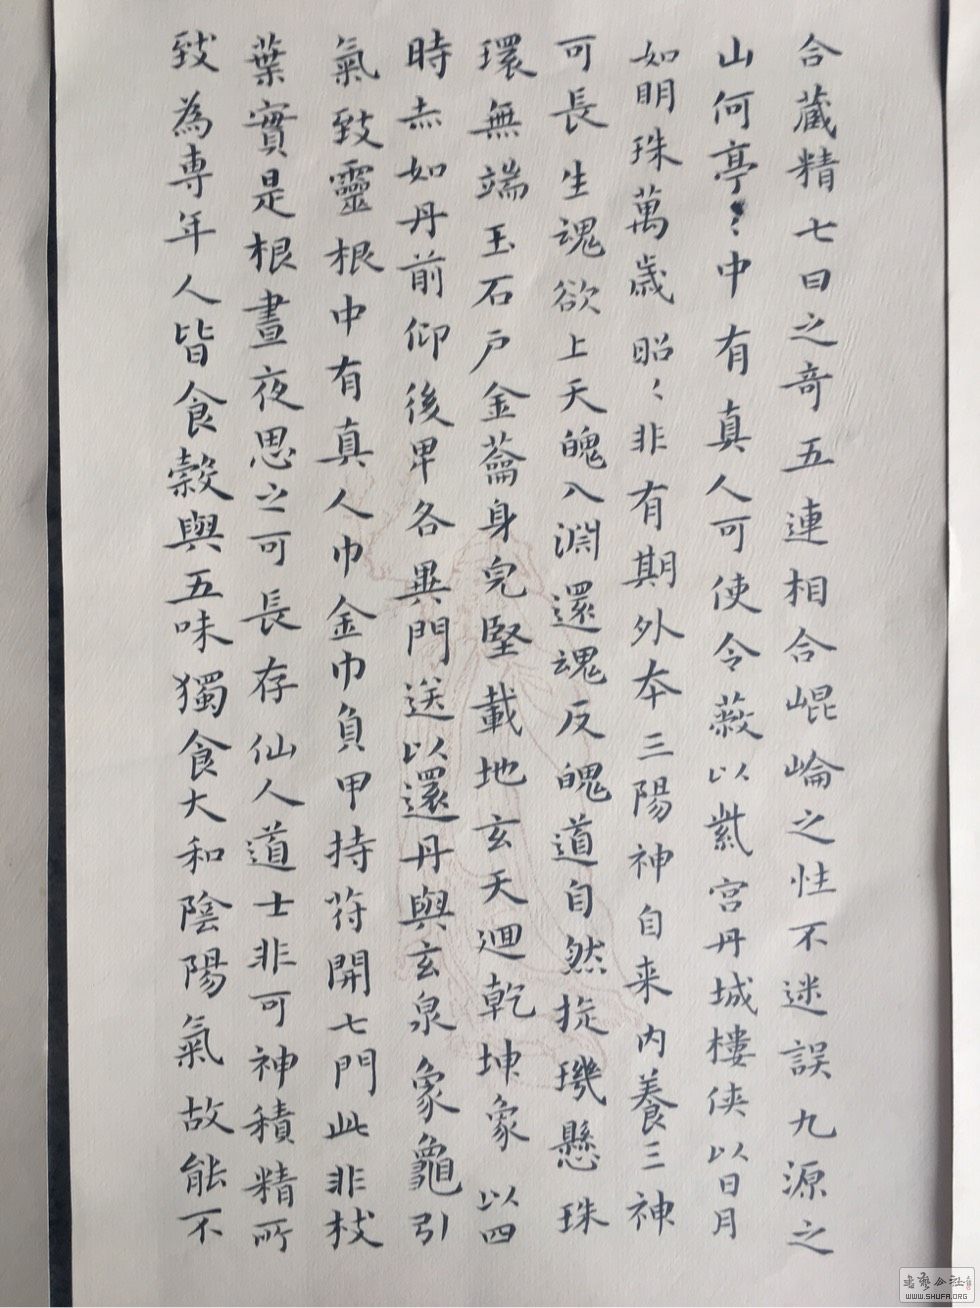 合藏精七日之奇五連相合崐崘之性不迷誤九源之
山何亭〻中有真人可使令蔽以紫宮丹城樓侠以日月
如明珠萬歳昭〻非有期外夲三陽神自来内養三神
可長生魂欲上天魄入淵還魂反魄道自然㧞璣懸珠
環無端玉石戶金蘥身皃堅載地玄天迴乾坤象以四
時赤如丹前仰後卑各異門送以還丹與玄泉象龜引
氣致靈根中有真人巾金巾負甲持苻開七門此非枝
葉實是根晝夜思之可長存仙人道士非可神積精所
致為専年人皆食榖與五味獨食大和陰陽氣故能不
書藝公社
WWW.SHUFA.ORG